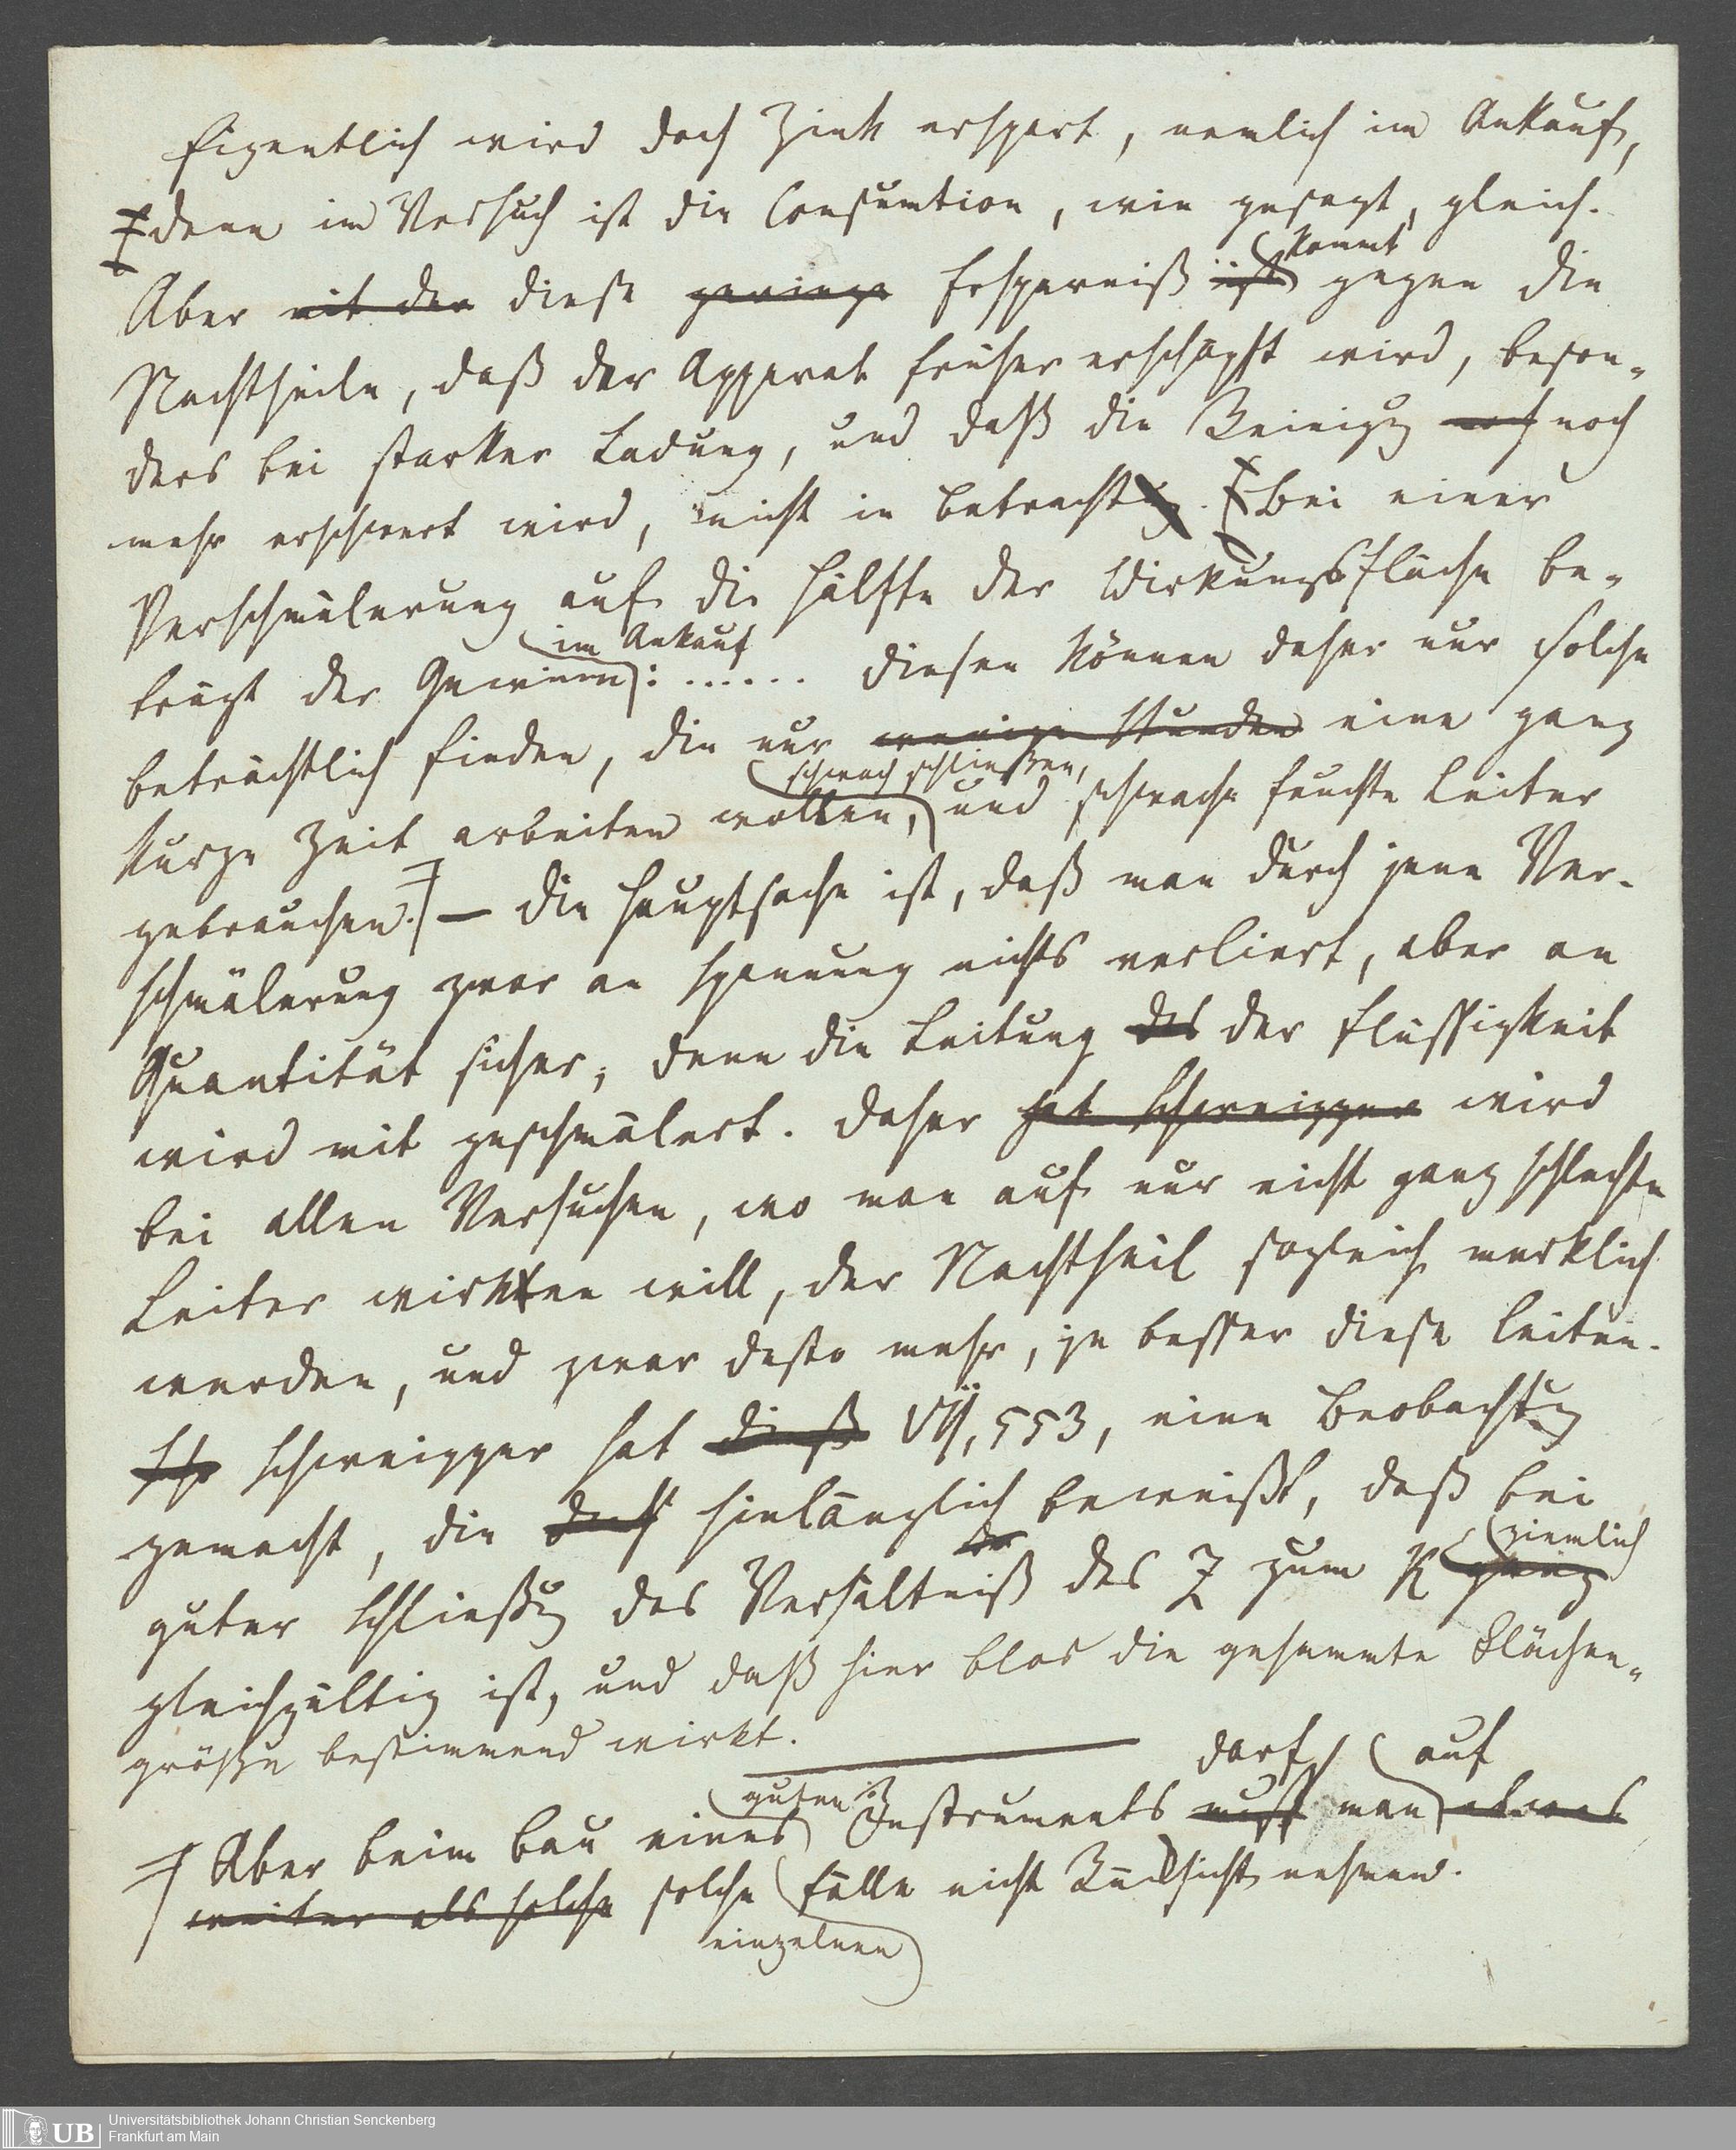 Eigentlich wird doch Zink erspart, nemlich im Ankauf,
denn im Versuch ist die Consumtion, wie gesagt, gleich.
kommt
Aber mit der diese geringe Ersparniß ist gegen die
Nachtheile, daß der Apparat früher erschöpft wird, beson-
ders bei starker Ladung, und daß die Reinigg noch
mehr erschwert wird, nicht in Betrachtg. Bei einer
Verschmälerung auf die Hälfte der Wirkungsfläche be-
im Ankauf
trägt der Gewinn: ...... Diesen können daher nur solche
beträchtlich finden, die nur wenige Stunden eine ganz
schwach schließen,
kurze Zeit arbeiten wollen, und schwache feuchte Leiter
gebrauchen. — Die Hauptsache ist, daß man durch jene Ver-
schmälerung zwar an Spannung nichts verliert, aber an
Quantität sicher; denn die Leitung des der Flüssigkeit
wird mit geschmälert. Daher hat Schweigger wird
bei allen Versuchen, wo man auf nur nicht ganz schlechte
Leiter wirken will, der Nachtheil sogleich merklich
werden, und zwar desto mehr, je besser diese leiten.
Sch Schweigger hat dieß VII, 553, eine Beobachtg
gemacht, die hinlänglich beweißt, daß bei
ziemlich
guter Schließg das Verhältniß des Z zum K ganz
gleichgültig ist, und daß hier blos die gesammte Flächen-
größe bestimmend wirkt.
darf auf
guten
Aber beim Bau eines Instruments muß man etwas
weiter als solche solche Fälle nicht Rücksicht nehmen.
einzelnen
UB
Universitätsbibliothek Johann Christian Senckenberg
Frankfurt am Main